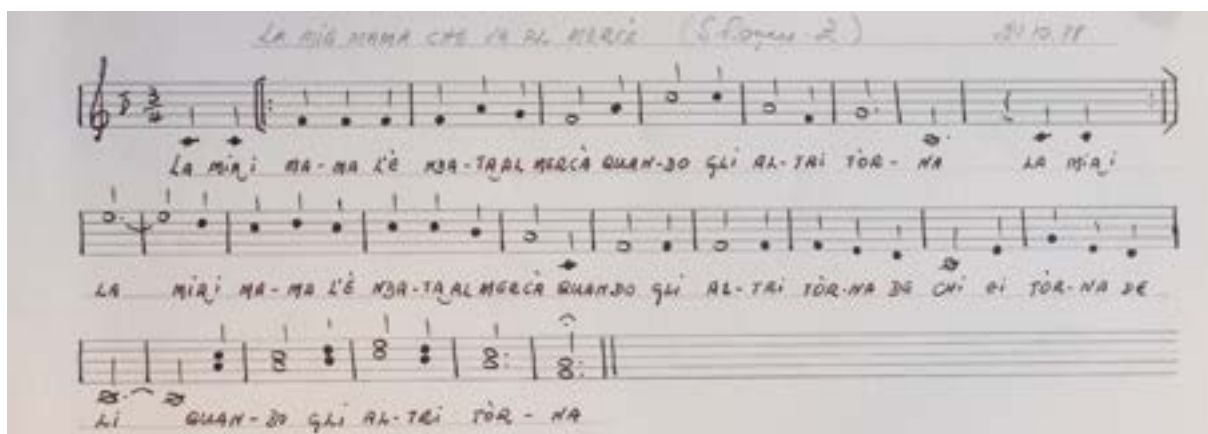 LA MIA MAMA CHE VA AL MERCÀ
3/4
LA MIRI MA-MA L'È NDA-TA AL MERCÀ QUAN-DO GLI AL-TRI TÒR-NA LA MIRI
LA MIRI MA-MA L'È NDA-TA AL MERCÀ QUANDO GLI AL-TRI TÒR-NA DE CHI EI TÒR-NA DE
LI QUAN-DO GLI AL-TRI TÒR-NA